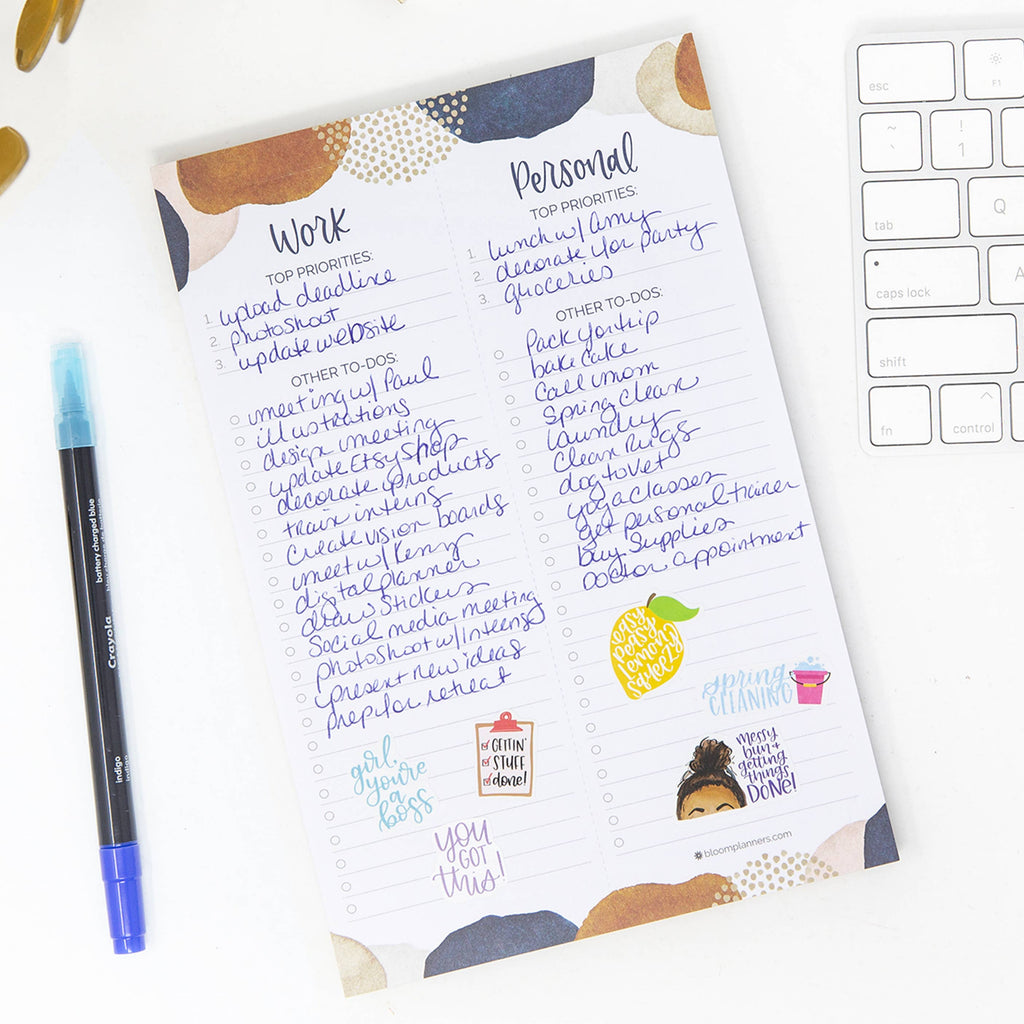 Work
TOP PRIORITIES:
1. upload deadline
2. photoshoot
3. update website
OTHER TO-DOS:
meeting w/ Paul
illustrations
design meeting
update Etsy shop
decorate products
train interns
create vision boards
meet w/ Kenny
digital planner
draw stickers
Social media meeting
photoshoot w/ interns
present new ideas
prep for retreat
girl,
you're
a
boss
GETTIN'
STUFF
done!
YOU
GOT
this!
Personal
TOP PRIORITIES:
1. lunch w/ Amy
2. decorate for party
3. groceries
OTHER TO-DOS:
Pack for trip
bake cake
Call mom
Spring Clean
laundry
Clean Rugs
dog to vet
yoga classes
get personal trainer
buy supplies
Doctor appointment
easy
peasy
lemon
squeezy
spring
CLEANING
messy
bun +
getting
things
DONE!
bloomplanners.com
battery charged blue
Crayola
indigo
indigo
esc
F1
~
`
!
1
tab
Q
caps lock
A
shift
fn
^
control